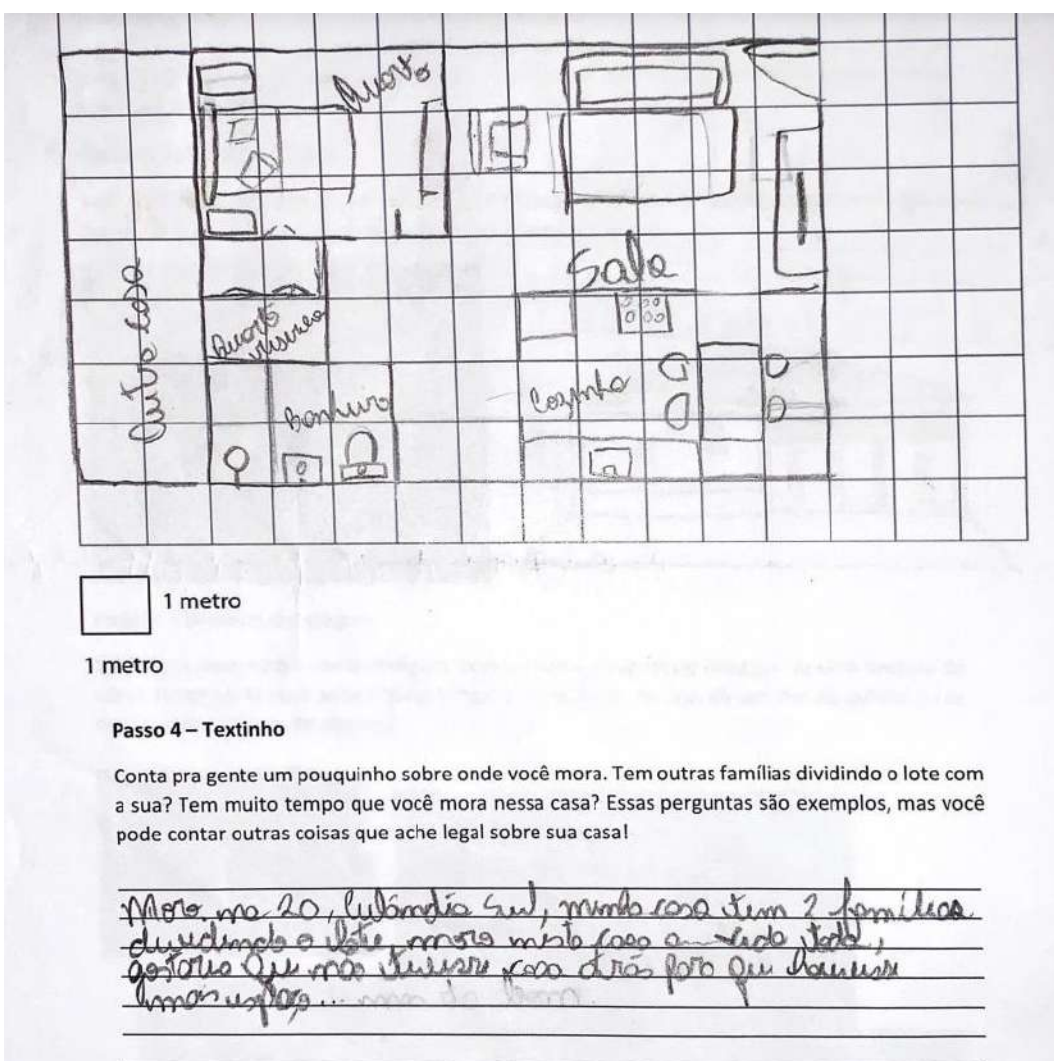 Quarto
Sala
Outra casa
Quarto
Cozinha
Banheiro
1 metro
1 metro
Passo 4 – Textinho
Conta pra gente um pouquinho sobre onde você mora. Tem outras famílias dividindo o lote com
a sua? Tem muito tempo que você mora nessa casa? Essas perguntas são exemplos, mas você
pode contar outras coisas que ache legal sobre sua casa!
Moro na 20, Sul, minha casa tem 2 famílias
dividindo o lote, moro nesta casa a vida toda,
gostaria que não tivesse casa atrás para que houvesse
mais espaço...